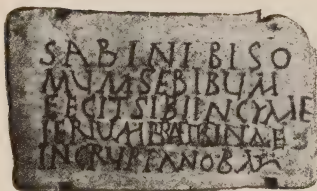 SABINI BISO
MUM SEBIBUM
FECIT SIBI INCYME
TERIUM BALBINAE
INCRUPTANOBA